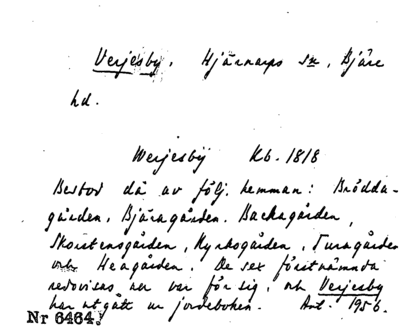 Verjesby. Hjärnarps sn, Bjäre
hd.
Werjesbÿ Kb. 1818
Bestod då av följ. hemman: Brödda-
gården, Bjäragården. Backagården,
Skorstensgården, Kyrksgården, Turagården
och Heagården. De sex förstnämnda
redovisas nu var för sig, och Verjesby
har utgått ur jordeboken. Ant. 1956.
Nr 6464.